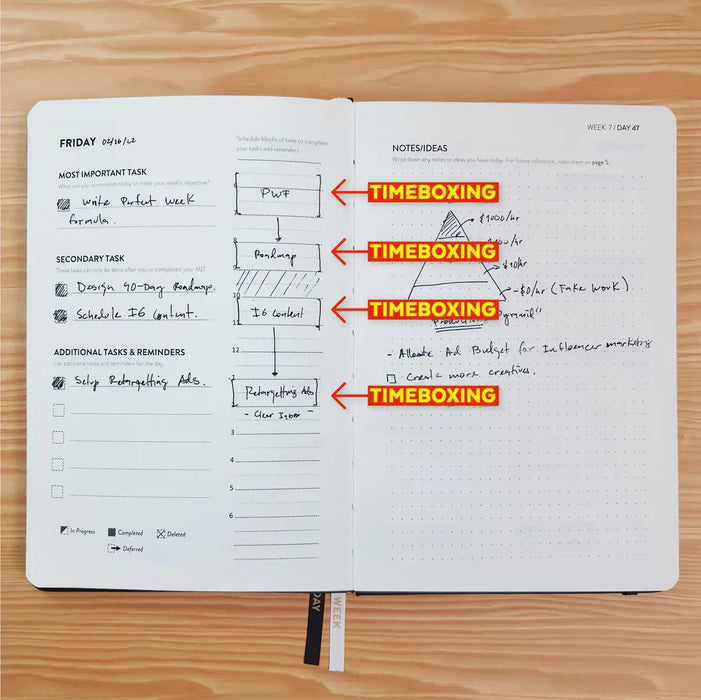 FRIDAY 02/16/22
MOST IMPORTANT TASK
What can you accomplish today to meet your weekly objective?
Write Perfect Week
formula.
SECONDARY TASK
These tasks can only be done after you've completed your MIT
Design 90-Day Roadmap.
Schedule IG Content.
ADDITIONAL TASKS & REMINDERS
List additional tasks and reminders for the day
Setup Retargetting Ads.
In Progress
Completed
Deleted
Deferred
Schedule blocks of time to complete
your tasks and reminders
PWF
7
8
Roadmap
10
IG Content
11
12
1
Retargetting Ads
- Clear Inbox -
3
4
5
6
TIMEBOXING
TIMEBOXING
TIMEBOXING
TIMEBOXING
WEEK 7 / DAY 47
NOTES/IDEAS
Write down any notes or ideas you have today. For future reference, index them on page 5.
$1000/hr
/hr
$10/hr
$0/hr (Fake Work).
Pyramid"
- Allocate Ad Budget for Influencer marketing
Create more creatives.
DAY
WEEK